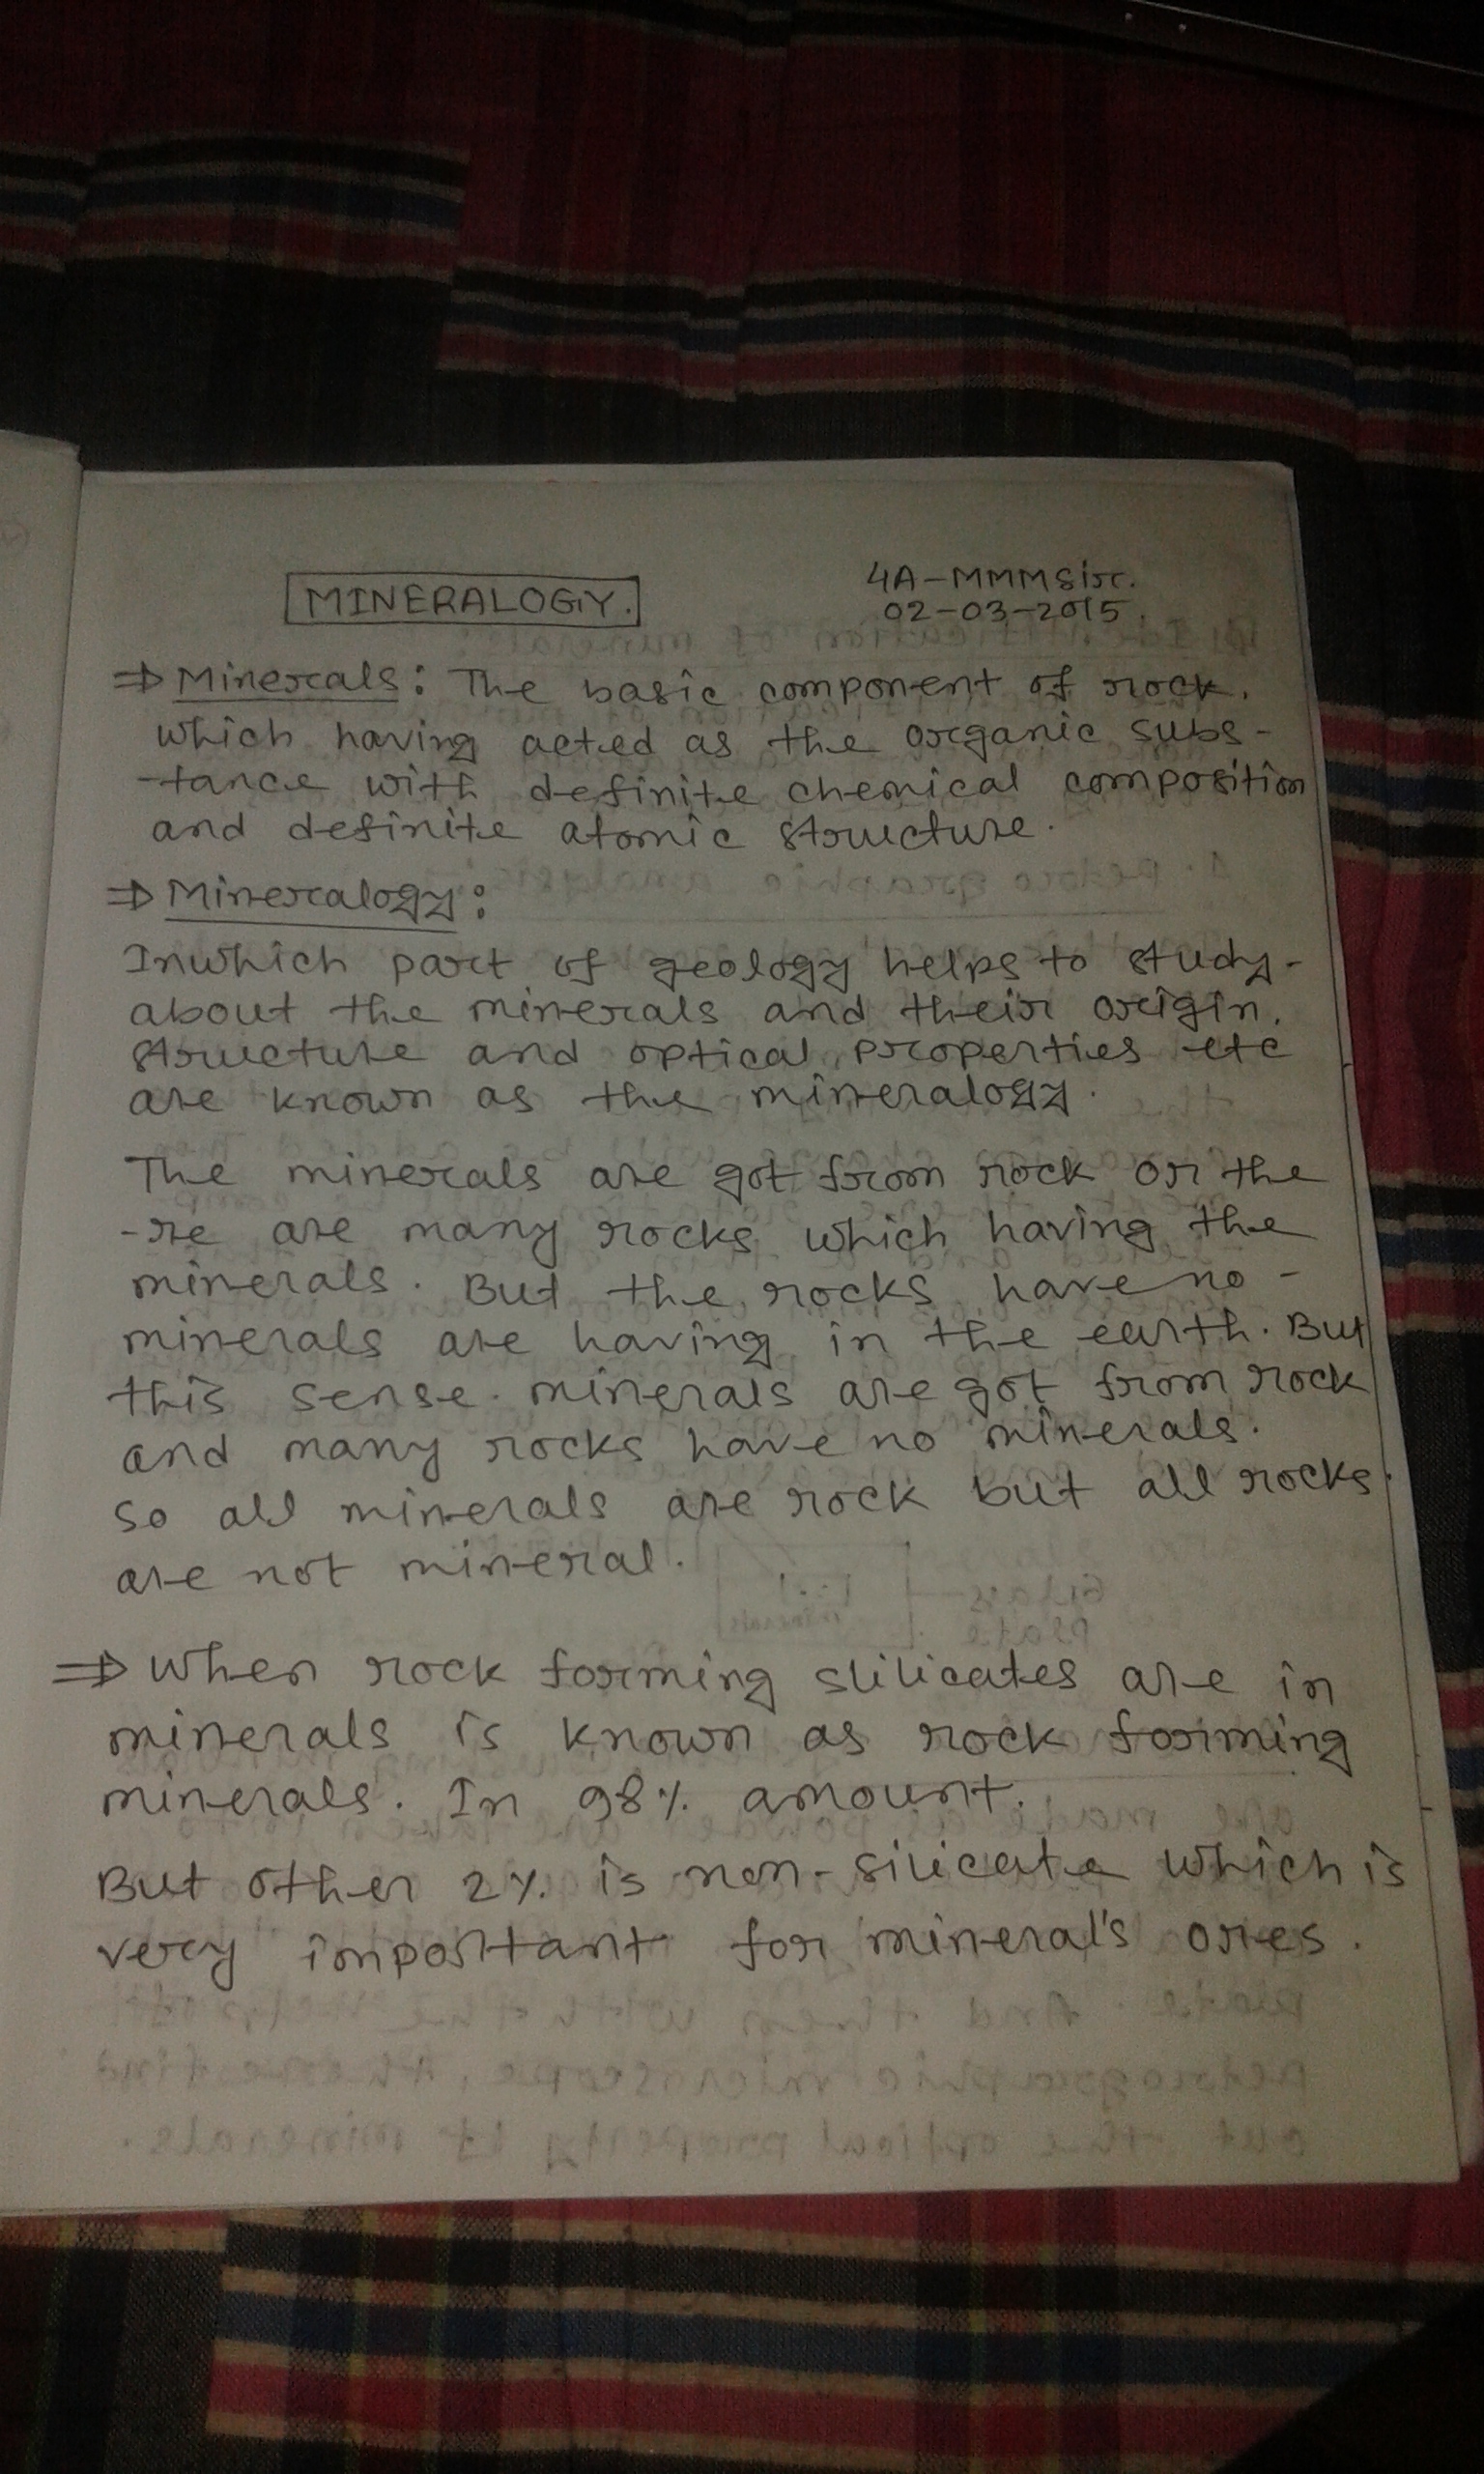 MINERALOGY.
4A-MMMSir.
02-03-2015.
⇒ Minerals: The basic component of rock.
which having acted as the organic subs-
-tance with definite chemical composition
and definite atomic structure.
⇒ Mineralogy:
Inwhich part of geology helps to study-
about the minerals and their origin.
structure and optical properties etc
are known as the mineralogy.
The minerals are got from rock or the
-re are many rocks which having the
minerals. But the rocks have no-
minerals are having in the earth. But
this sense minerals are got from rock
and many rocks have no minerals.
so all minerals are rock but all rocks
are not mineral.
⇒ When rock forming slilicates are in
minerals is known as rock forming
minerals. In 98% amount.
But other 2% is non-silicate which is
very important for mineral's ores.